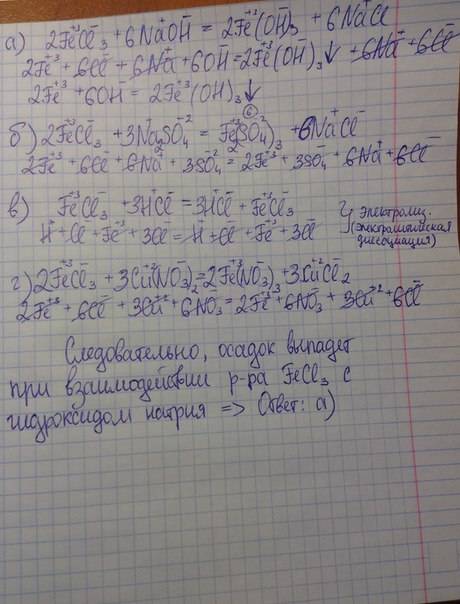 а) 2Fe⁺³Cl⁻₃ + 6Na⁺OH⁻ = 2Fe⁺³(OH)⁻₃ + 6Na⁺Cl⁻
2Fe⁺³ + 6Cl⁻ + 6Na⁺ + 6OH⁻ = 2Fe⁺³(OH)⁻₃↓ + 6Na⁺ + 6Cl⁻
2Fe⁺³ + 6OH⁻ = 2Fe⁺³(OH)₃↓
б) 2Fe⁺³Cl⁻₃ + 3Na⁺₂SO₄⁻² = Fe⁺³₂(SO₄)₃ + 6Na⁺Cl⁻
2Fe⁺³ + 6Cl⁻ + 6Na⁺ + 3SO₄⁻ = 2Fe⁺³ + 3SO₄⁻ + 6Na⁺ + 6Cl⁻
в) Fe⁺³Cl⁻₃ + 3H⁺Cl⁻ = 3H⁺Cl⁻ + Fe⁺³Cl₃
H⁺ + Cl⁻ + Fe⁺³ + 3Cl⁻ = H⁺ + Cl⁻ + Fe⁺³ + 3Cl⁻
(электролитическая диссоциация)
г) 2Fe⁺³Cl⁻₃ + 3Cu⁺²(NO₃)⁻₂ = 2Fe⁺³(NO₃)⁻₃ + 3Cu⁺²Cl⁻₂
2Fe⁺³ + 6Cl⁻ + 3Cu⁺² + 6NO₃⁻ = 2Fe⁺³ + 6NO₃⁻ + 3Cu⁺² + 6Cl⁻
Следовательно, осадок выпадет
при взаимодействии р-ра FeCl₃ с
гидроксидом натрия => Ответ: а)